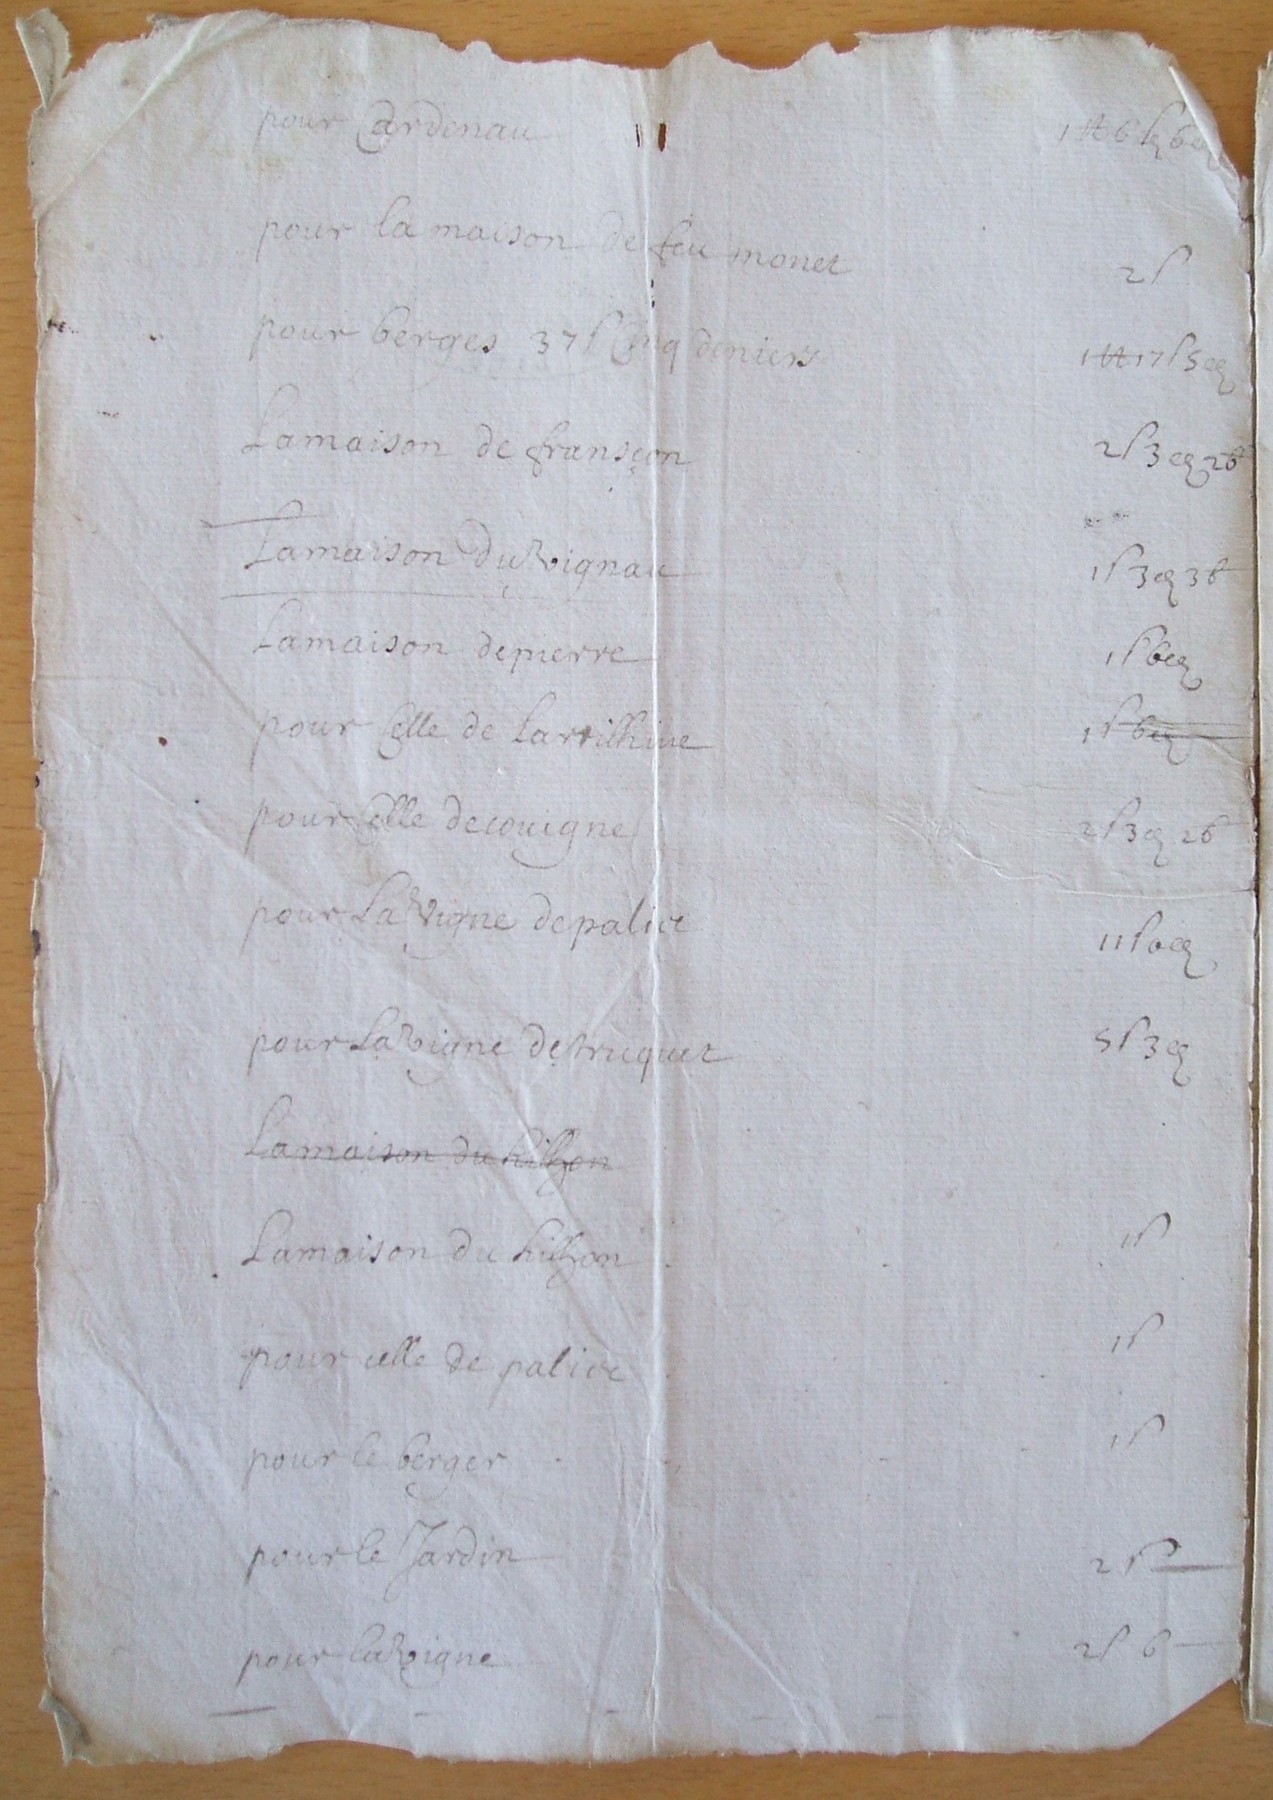 pour Cardenau 1 tt 6 s 6
pour la maison de feu monet 2 s
pour berges 37 s Cinq deniers 1 tt 17 s 5 d
La maison de fransçon 2 s 3 d 2 b
La maison du vignau 1 s 3 d 3 b
La maison de pierre 1 s 6 d
pour Celle de 1 s 6 d
pour Celle de couigne 2 s 3 d 2 b
pour La vigne de palice 11 s 6 d
pour La vigne de truquet 5 s 3 d
La maison du hilhon
La maison du hilhon 1 s
pour celle de palice 1 s
pour le berger 1 s
pour le Jardin 2 s
pour la vigne 2 s 6